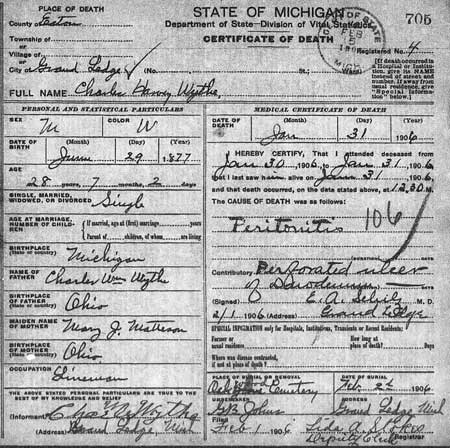 PLACE OF DEATH
County of Eaton
Township of
Village of
City of Grand Ledge (No. St.; Ward)
STATE OF MICHIGAN
Department of State—Division of Vital Statistics
CERTIFICATE OF DEATH
705
Registered No. 4
[If death occurred in a Hospital or Institution, give its NAME instead of street and number. If away from usual residence, give "Special Information" below.]
FULL NAME Charles Harvey Wythe
PERSONAL AND STATISTICAL PARTICULARS
SEX M COLOR W
DATE OF BIRTH (Month) (Day) (Year)
June 29 1877
AGE
28 years, 7 months, 2 days
SINGLE, MARRIED, WIDOWED, OR DIVORCED Single
AGE AT MARRIAGE, NUMBER OF CHILDREN
If married, age at (first) marriage years
Parent of children, of whom are living
BIRTHPLACE (State or country) Michigan
NAME OF FATHER Charles Wm Wythe
BIRTHPLACE OF FATHER (State or country) Ohio
MAIDEN NAME OF MOTHER Mary J. Matteson
BIRTHPLACE OF MOTHER (State or country) Ohio
OCCUPATION Lineman
THE ABOVE STATED PERSONAL PARTICULARS ARE TRUE TO THE BEST OF MY KNOWLEDGE AND BELIEF
(Informant) Chas Wythe
(Address) Grand Ledge, Mich
MEDICAL CERTIFICATE OF DEATH
DATE OF DEATH (Month) (Day) (Year)
Jan 31 1906
I HEREBY CERTIFY, That I attended deceased from
Jan 30 1906 to Jan 31 1906
that I last saw him alive on Jan 31 1906
and that death occurred, on the date stated above, at 12,30 M.
The CAUSE OF DEATH was as follows:
Peritonitis
106
Contributory Perforated ulcer
of Duodenum
(Signed) E. A. M. D.
2/1 1906 (Address) Grand Ledge
SPECIAL INFORMATION only for Hospitals, Institutions, Transients or Recent Residents:
Former or usual residence How long at place of death? Days
Where was disease contracted, if not at place of death?
PLACE OF BURIAL OR REMOVAL DATE OF BURIAL
Cemetery Feb. 2d 1906
Johns Grand Ledge Mich
Filed Feb 1 1906
Deputy Clerk